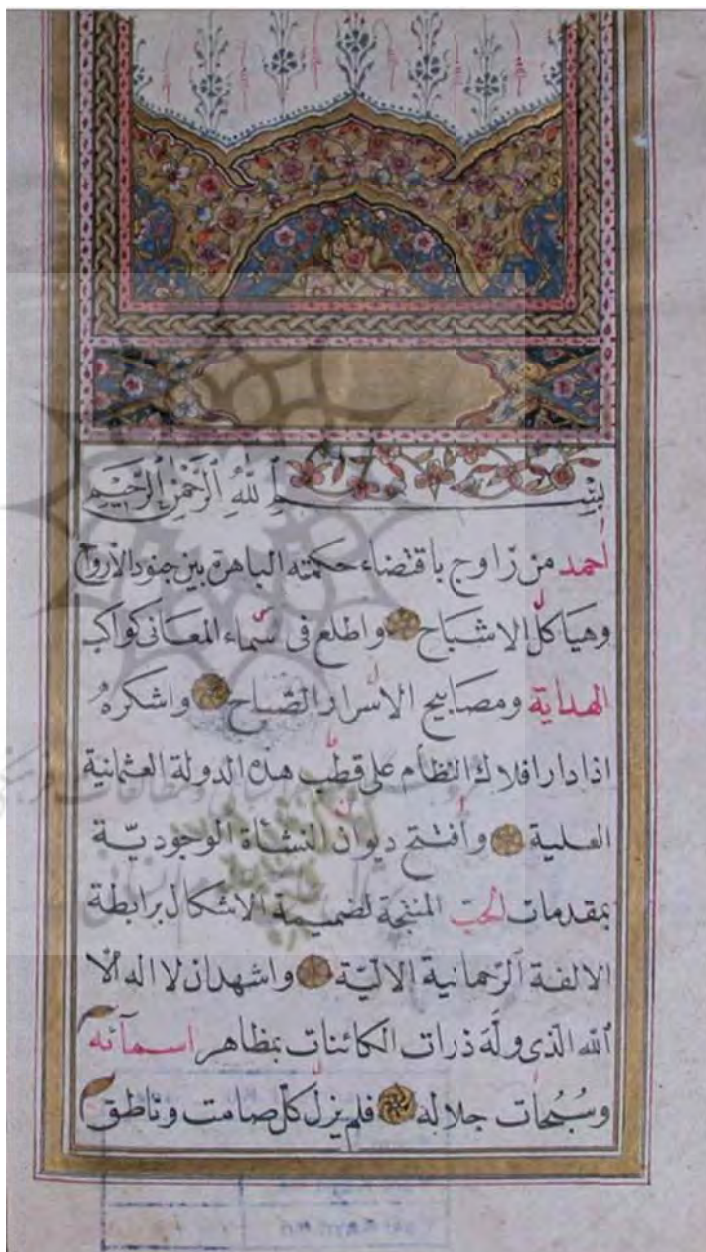 بِسْمِ اللّٰهِ الرَّحْمٰنِ الرَّحِيْمِ
أحمد من زاوج باقتضاء حكمته الباهرة بين جنود الارواح
وهياكل الاشباح واطلع فى سماء المعانى كواكب
الهداية ومصابيح الاسرار الصباح واشكرهُ
اذا دار افلاك النظام على قطب هذه الدولة العثمانية
العلية وأفتتح ديوان النشأة الوجوديّة
بمقدمات الحبّ المنتجة لضميمة الاشكال برابطة
الالفة الرّحمانية الالٓيّة واشهد ان لا اله الّا
الله الّذى ولّه ذرات الكائنات بمظاهر اسمآئه
وسُبُحات جلاله فلم يزل كلّ صامت وناطق